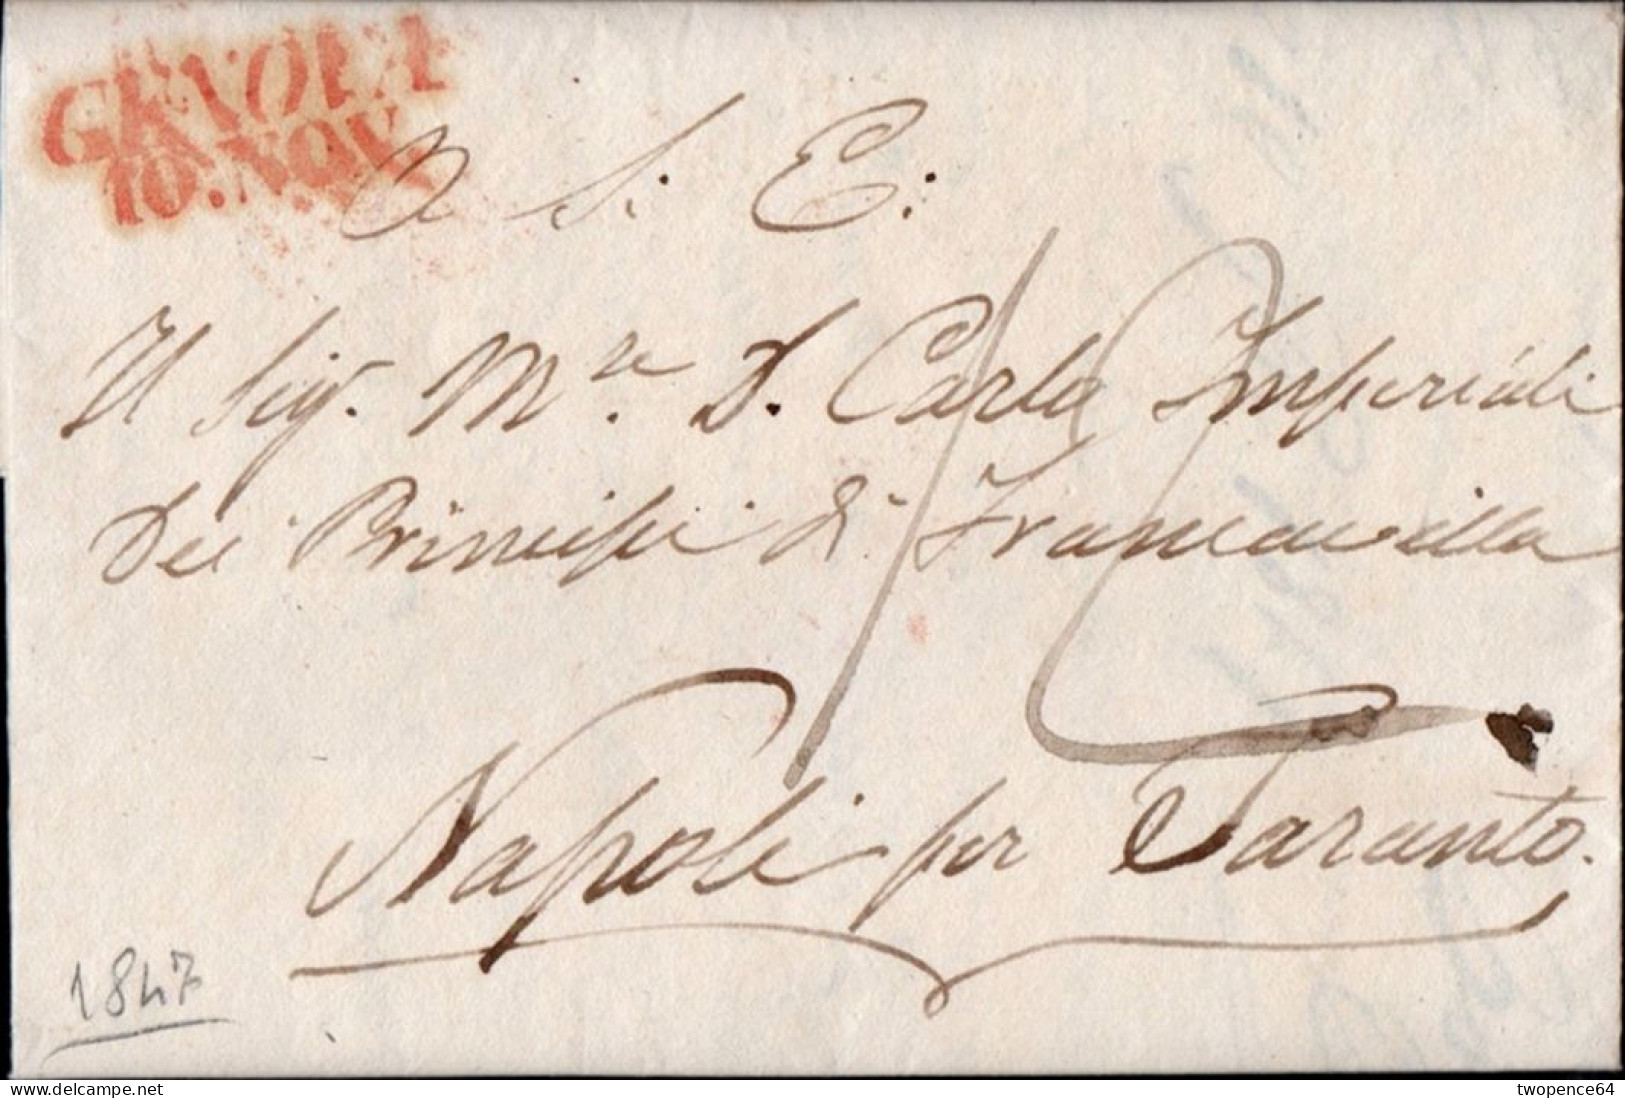 GENOVA
10. NOV.
A S. E.
Il Sig. M.re D. Carlo Imperiali
Dei Principi di Francavilla
Napoli per Taranto.
1847
delcampe.net
twopence64